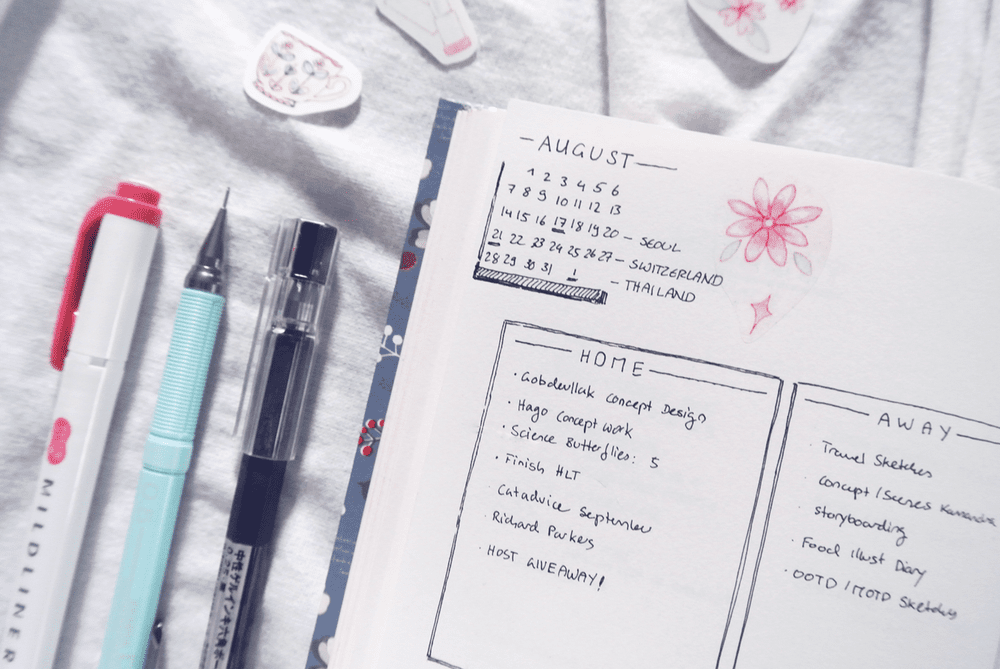 MILDLINER
中性ゲルインキ
AUGUST
1 2 3 4 5 6
7 8 9 10 11 12 13
14 15 16 17 18 19 20 – SEOUL
21 22 23 24 25 26 27 – SWITZERLAND
28 29 30 31 1 – THAILAND
HOME
· Concept Design
· Hago Concept work
· Science Butterflies: 5
· Finish HLT
Catadvice September
· Richard Parkers
· HOST GIVEAWAY!
AWAY
· Travel Sketches
· Concept / Scenes Kassandra
· Storyboarding
· Food Illust Diary
· OOTD / MOTD Sketches